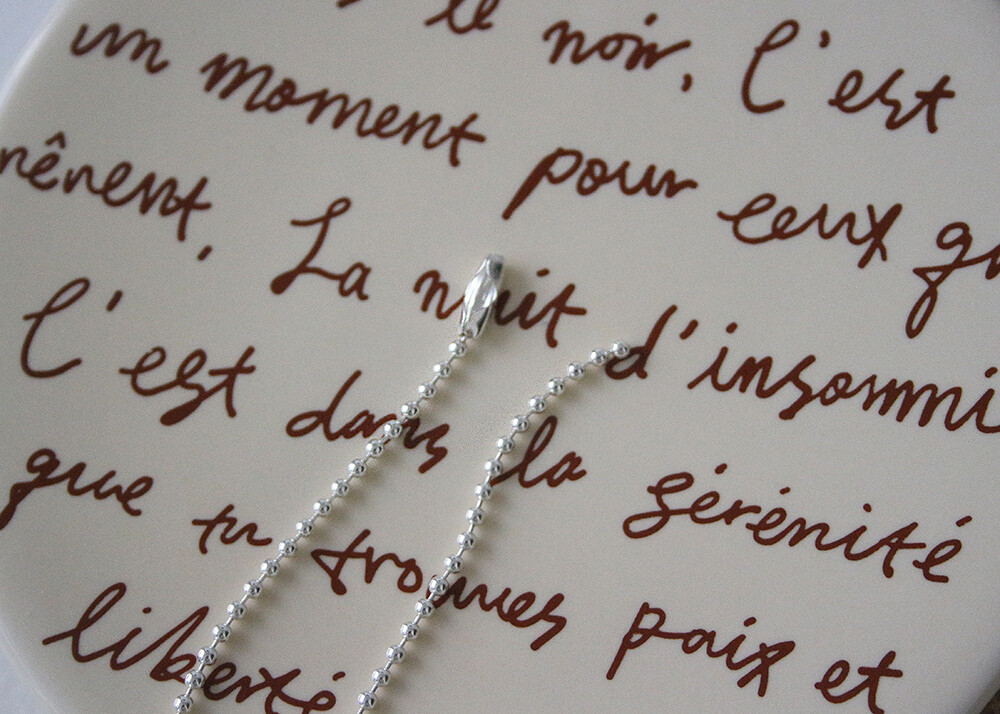 le noir. C'est
un moment pour ceux qu
rêvent. La nuit d'insomni
C'est dans la sérénité
que tu trouves paix et
liberté